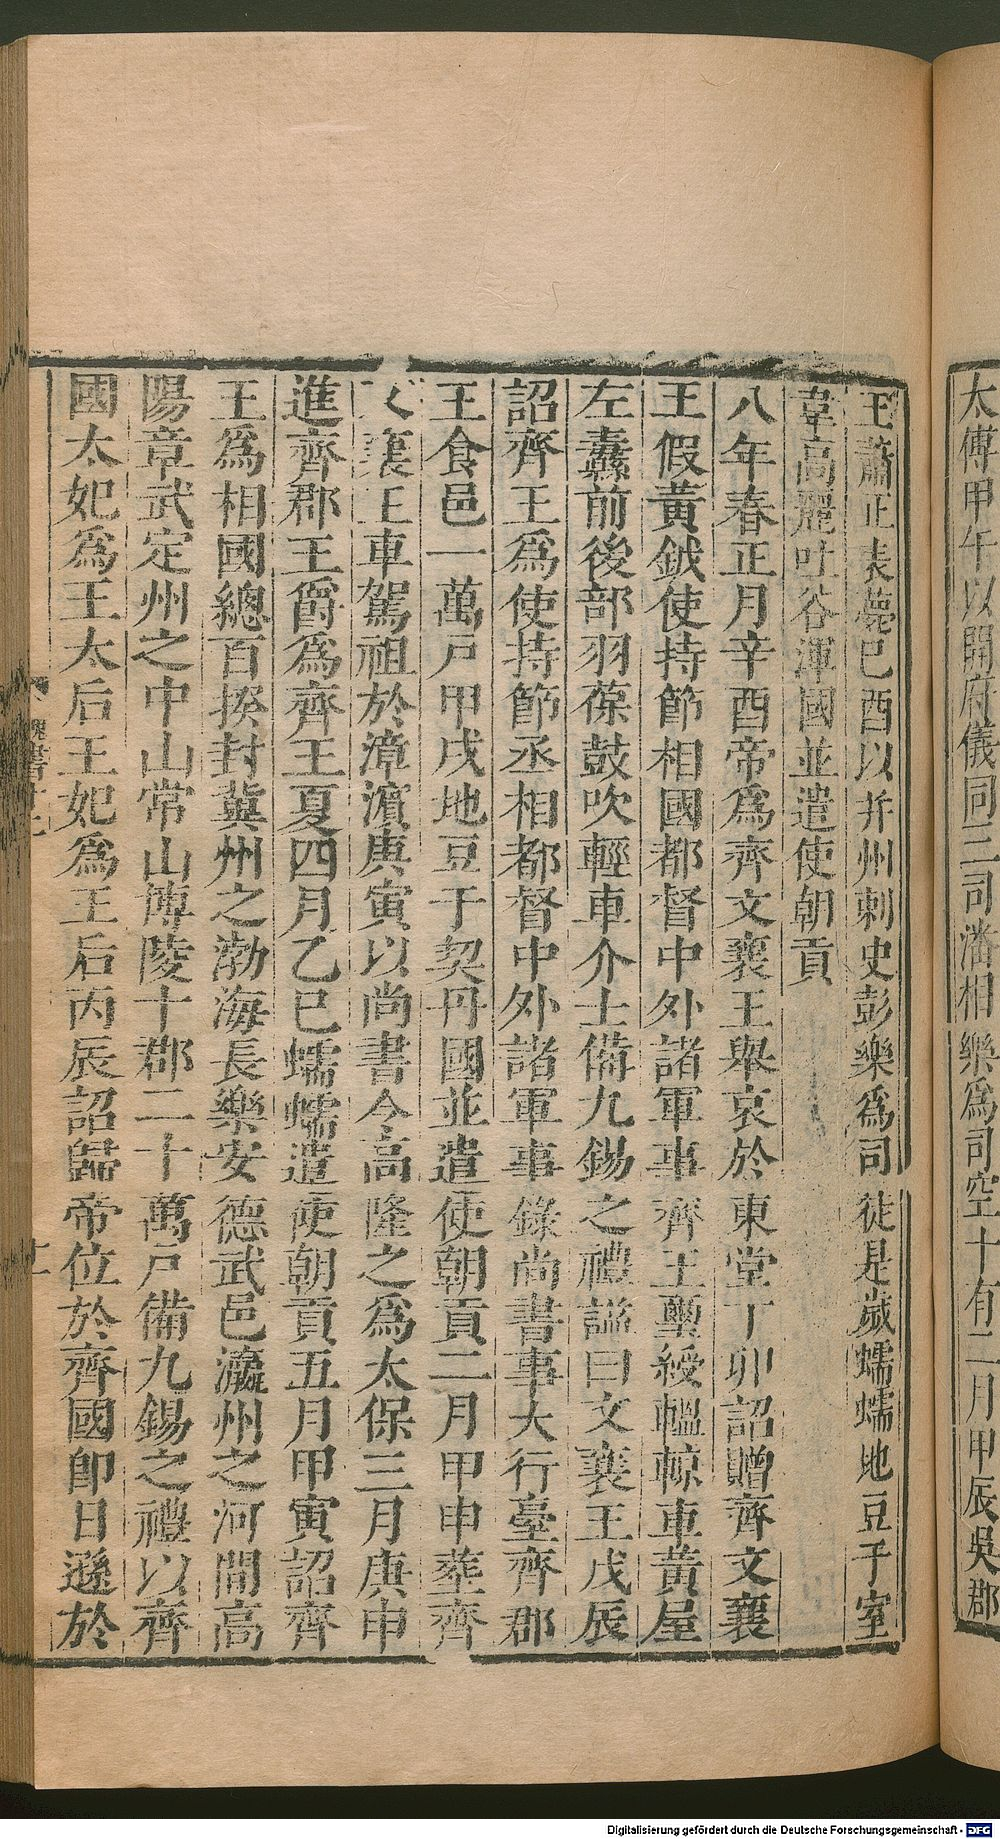 太傅甲午以開府儀同三司潘相樂爲司空十有二月甲辰吳郡
王蕭正表薨巳酉以并州刺史彭樂爲司徒是歲蠕蠕地豆于室
韋高麗吐谷渾國並遣使朝貢
八年春正月辛酉帝爲齊文襄王舉哀於東堂丁卯詔贈齊文襄
王假黃鉞使持節相國都督中外諸軍事齊王璽綬轀輬車黃屋
左纛前後部羽葆鼓吹輕車介士備九錫之禮諡曰文襄王戊辰
詔齊王爲使持節丞相都督中外諸軍事錄尚書事大行臺齊郡
王食邑一萬戶甲戌地豆于契丹國並遣使朝貢二月甲申葬齊
文襄王車駕祖於漳濱庚寅以尚書令高隆之爲太保三月庚申
進齊郡王爵爲齊王夏四月乙巳蠕蠕遣使朝貢五月甲寅詔齊
王爲相國總百揆封冀州之渤海長樂安德武邑瀛州之河間高
陽章武定州之中山常山博陵十郡二十萬戶備九錫之禮以齊
國太妃爲王太后王妃爲王后丙辰詔歸帝位於齊國卽日遜於
魏書十二
十一
Digitalisierung gefördert durch die Deutsche Forschungsgemeinschaft - DFG